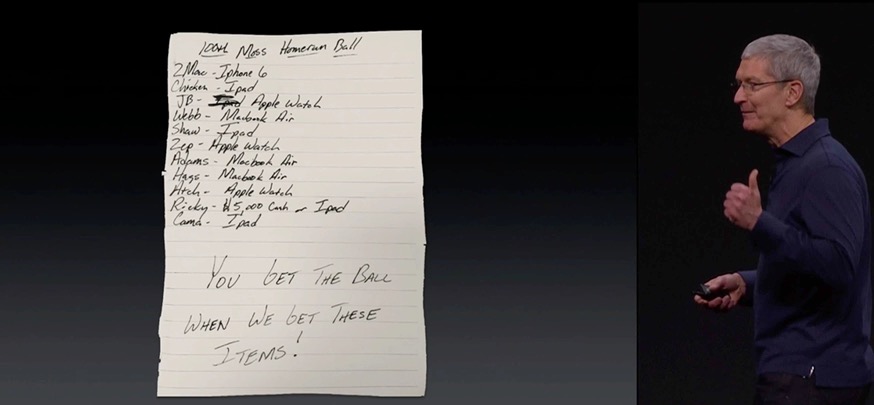 100th Moss Homerun Ball
2Mac - Iphone 6
Chicken - Ipad
JB - Ipad Apple Watch
Webb - Macbook Air
Shaw - Ipad
Zep - Apple Watch
Adams - Macbook Air
Hags - Macbook Air
Atch - Apple Watch
Ricky - $5,000 Cash or Ipad
Cama - Ipad
YOU GET THE BALL
WHEN WE GET THESE
ITEMS!